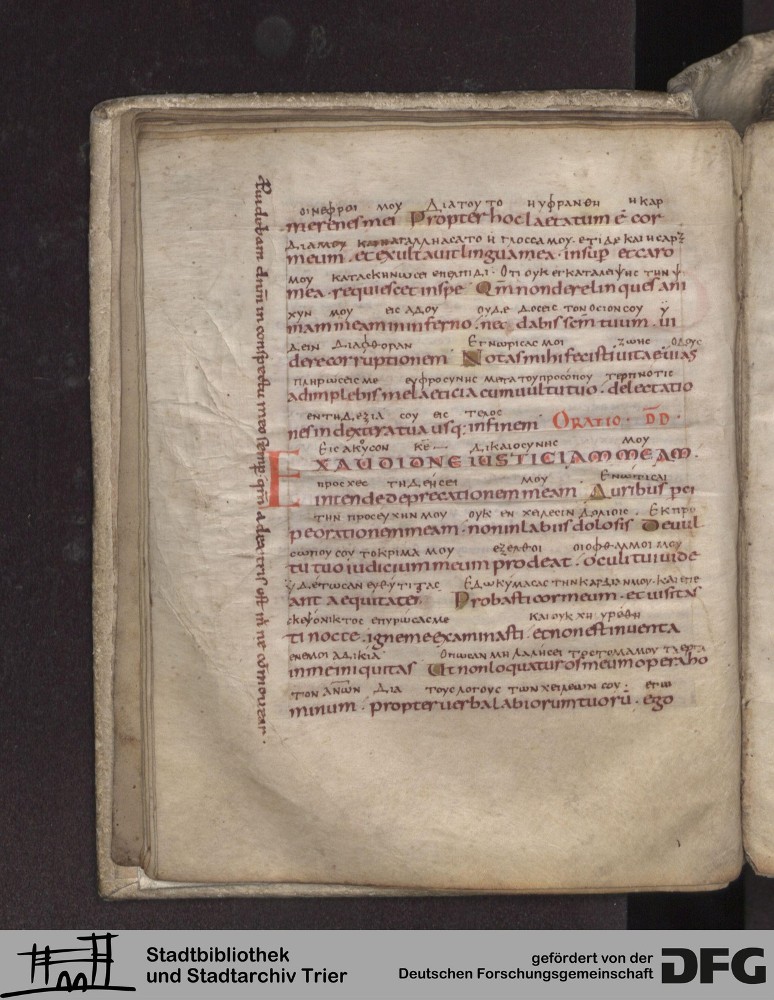 ΟΙΝΕΦΡΟΙ ΜΟΥ ΔΙΑΤΟΥΤΟ ΗΥΦΡΑΝΘΗ Η ΚΑΡ
me renes mei Propter hoc laetatum ē cor
ΔΙΑ ΜΟΥ ΚΑΙ ΗΓΑΛΛΗΑΣΑΤΟ Η ΓΛΟΣΣΑ ΜΟΥ ΕΤΙΔΕ ΚΑΙ Η ΣΑΡΞ
meum · et exultauit lingua mea · insup et caro
ΜΟΥ ΚΑΤΑΣΚΗΝΩΣΕΙ ΕΠΕΛΠΙΔΙ · ΟΤΙ ΟΥΚ ΕΓΚΑΤΑΛΕΙΨΗΣ ΤΗΝ Ψ
mea · requiescet in spe Qm̄ non derelinques ani
ΧΥΝ ΜΟΥ ΕΙΣ ΑΔΟΥ ΟΥΔΕ ΔΟΣΕΙΣ ΤΟΝ ΟΣΙΟΝ ΣΟΥ
mam meam in inferno · nec dabis scm̄ tuum · ui
ΔΕΙΝ ΔΙΑΦΘΟΡΑΝ ΕΓΝΩΡΙΣΑΣ ΜΟΙ ΖΩΗΣ ΟΔΟΥΣ
dere corruptionem Notas mihi fecisti uitae uias
ΠΛΗΡΩΣΕΙΣ ΜΕ ΕΥΦΡΟΣΥΝΗΣ ΜΕΤΑ ΤΟΥ ΠΡΟΣΟΠΟΥ ΤΕΡΠΝΟΤΙΣ
adimplebis me laeticia cum uultu tuo · delectatio
ΕΝ ΤΗ ΔΕΞΙΑ ΣΟΥ ΕΙΣ ΤΕΛΟΣ
nes in dextra tua usq; in finem ORATIO · DD ·
ΕΙΣΑΚΥΣΟΝ ΚΕ ΔΙΚΑΙΟΣΥΝΗΣ ΜΟΥ
EXAUDI DNE IUSTICIAM MEAM ·
ΠΡΟΣΧΕΣ ΤΗ ΔΕΗΣΕΙ ΜΟΥ ΕΝΩΤΙΣΑΙ
intende deprecationem meam Auribus pci
ΤΗΝ ΠΡΟΣΕΥΧΗΝ ΜΟΥ ΟΥΚ ΕΝ ΧΕΛΕΣΙΝ ΔΟΛΙΟΙΣ · ΕΚ ΠΡΟ
pe orationem meam · non in labiis dolosis De uul
ΣΩΠΟΥ ΣΟΥ ΤΟ ΚΡΙΜΑ ΜΟΥ ΕΞΕΛΘΟΙ ΟΙ ΟΦΘΑΛΜΟΙ ΜΟΥ
tu tuo iudicium meum prodeat · oculi tui uide
ΕΔΩΚΥΜΑΣΑΣ ΤΗΝ ΚΑΡΔΙΑΝ ΜΟΥ · ΚΑΙ ΕΠΕ
ant aequitates Probasti cor meum · et uisitas
ΕΠΥΡΩΣΑΣ ΜΕ ΚΑΙ ΟΥΚ ΧΗΥΡΕΘΗ
ti nocte · igne me examinasti · et non est inuenta
ΕΝ ΕΜΟΙ ΑΔΙΚΙΑ ΟΠΩΣ ΑΝ ΜΗ ΛΑΛΗΣΕΙ ΤΟ ΣΤΟΜΑ ΜΟΥ ΤΑ ΕΡΓΑ
in me iniquitas Ut non loquatur os meum opera ho
ΤΟΝ ΑΝΩΝ ΔΙΑ ΤΟΥΣ ΛΟΓΟΥΣ ΤΩΝ ΧΕΙΛΕΩΝ ΣΟΥ · ΕΓΩ
minum · propter uerba labiorum tuorū · ego
Puidebam dnm̄ in conspectu meo semp · qm̄ a dextris est m̄ ne cōmouear ·
Stadtbibliothek
und Stadtarchiv Trier
gefördert von der
Deutschen Forschungsgemeinschaft
DFG